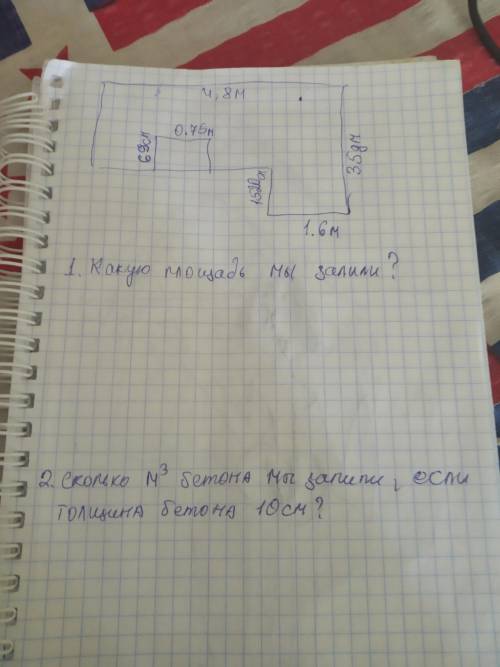 4,8м
0.75м
69см
35дм
1.6м
1. Какую площадь мы залили?
2. Сколько м³ бетона мы залили, если
толщина бетона 10см?